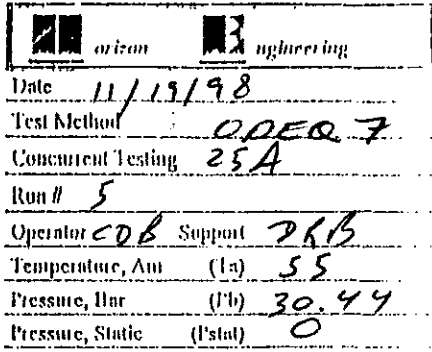 orizon ngineering
Date 11/19/98
Test Method ODEQ 7
Concurrent Testing 25A
Run # 5
Operator CDB Support DRB
Temperature, Am (Ta) 55
Pressure, Bar (Pb) 30.44
Pressure, Static (Pstat) 0